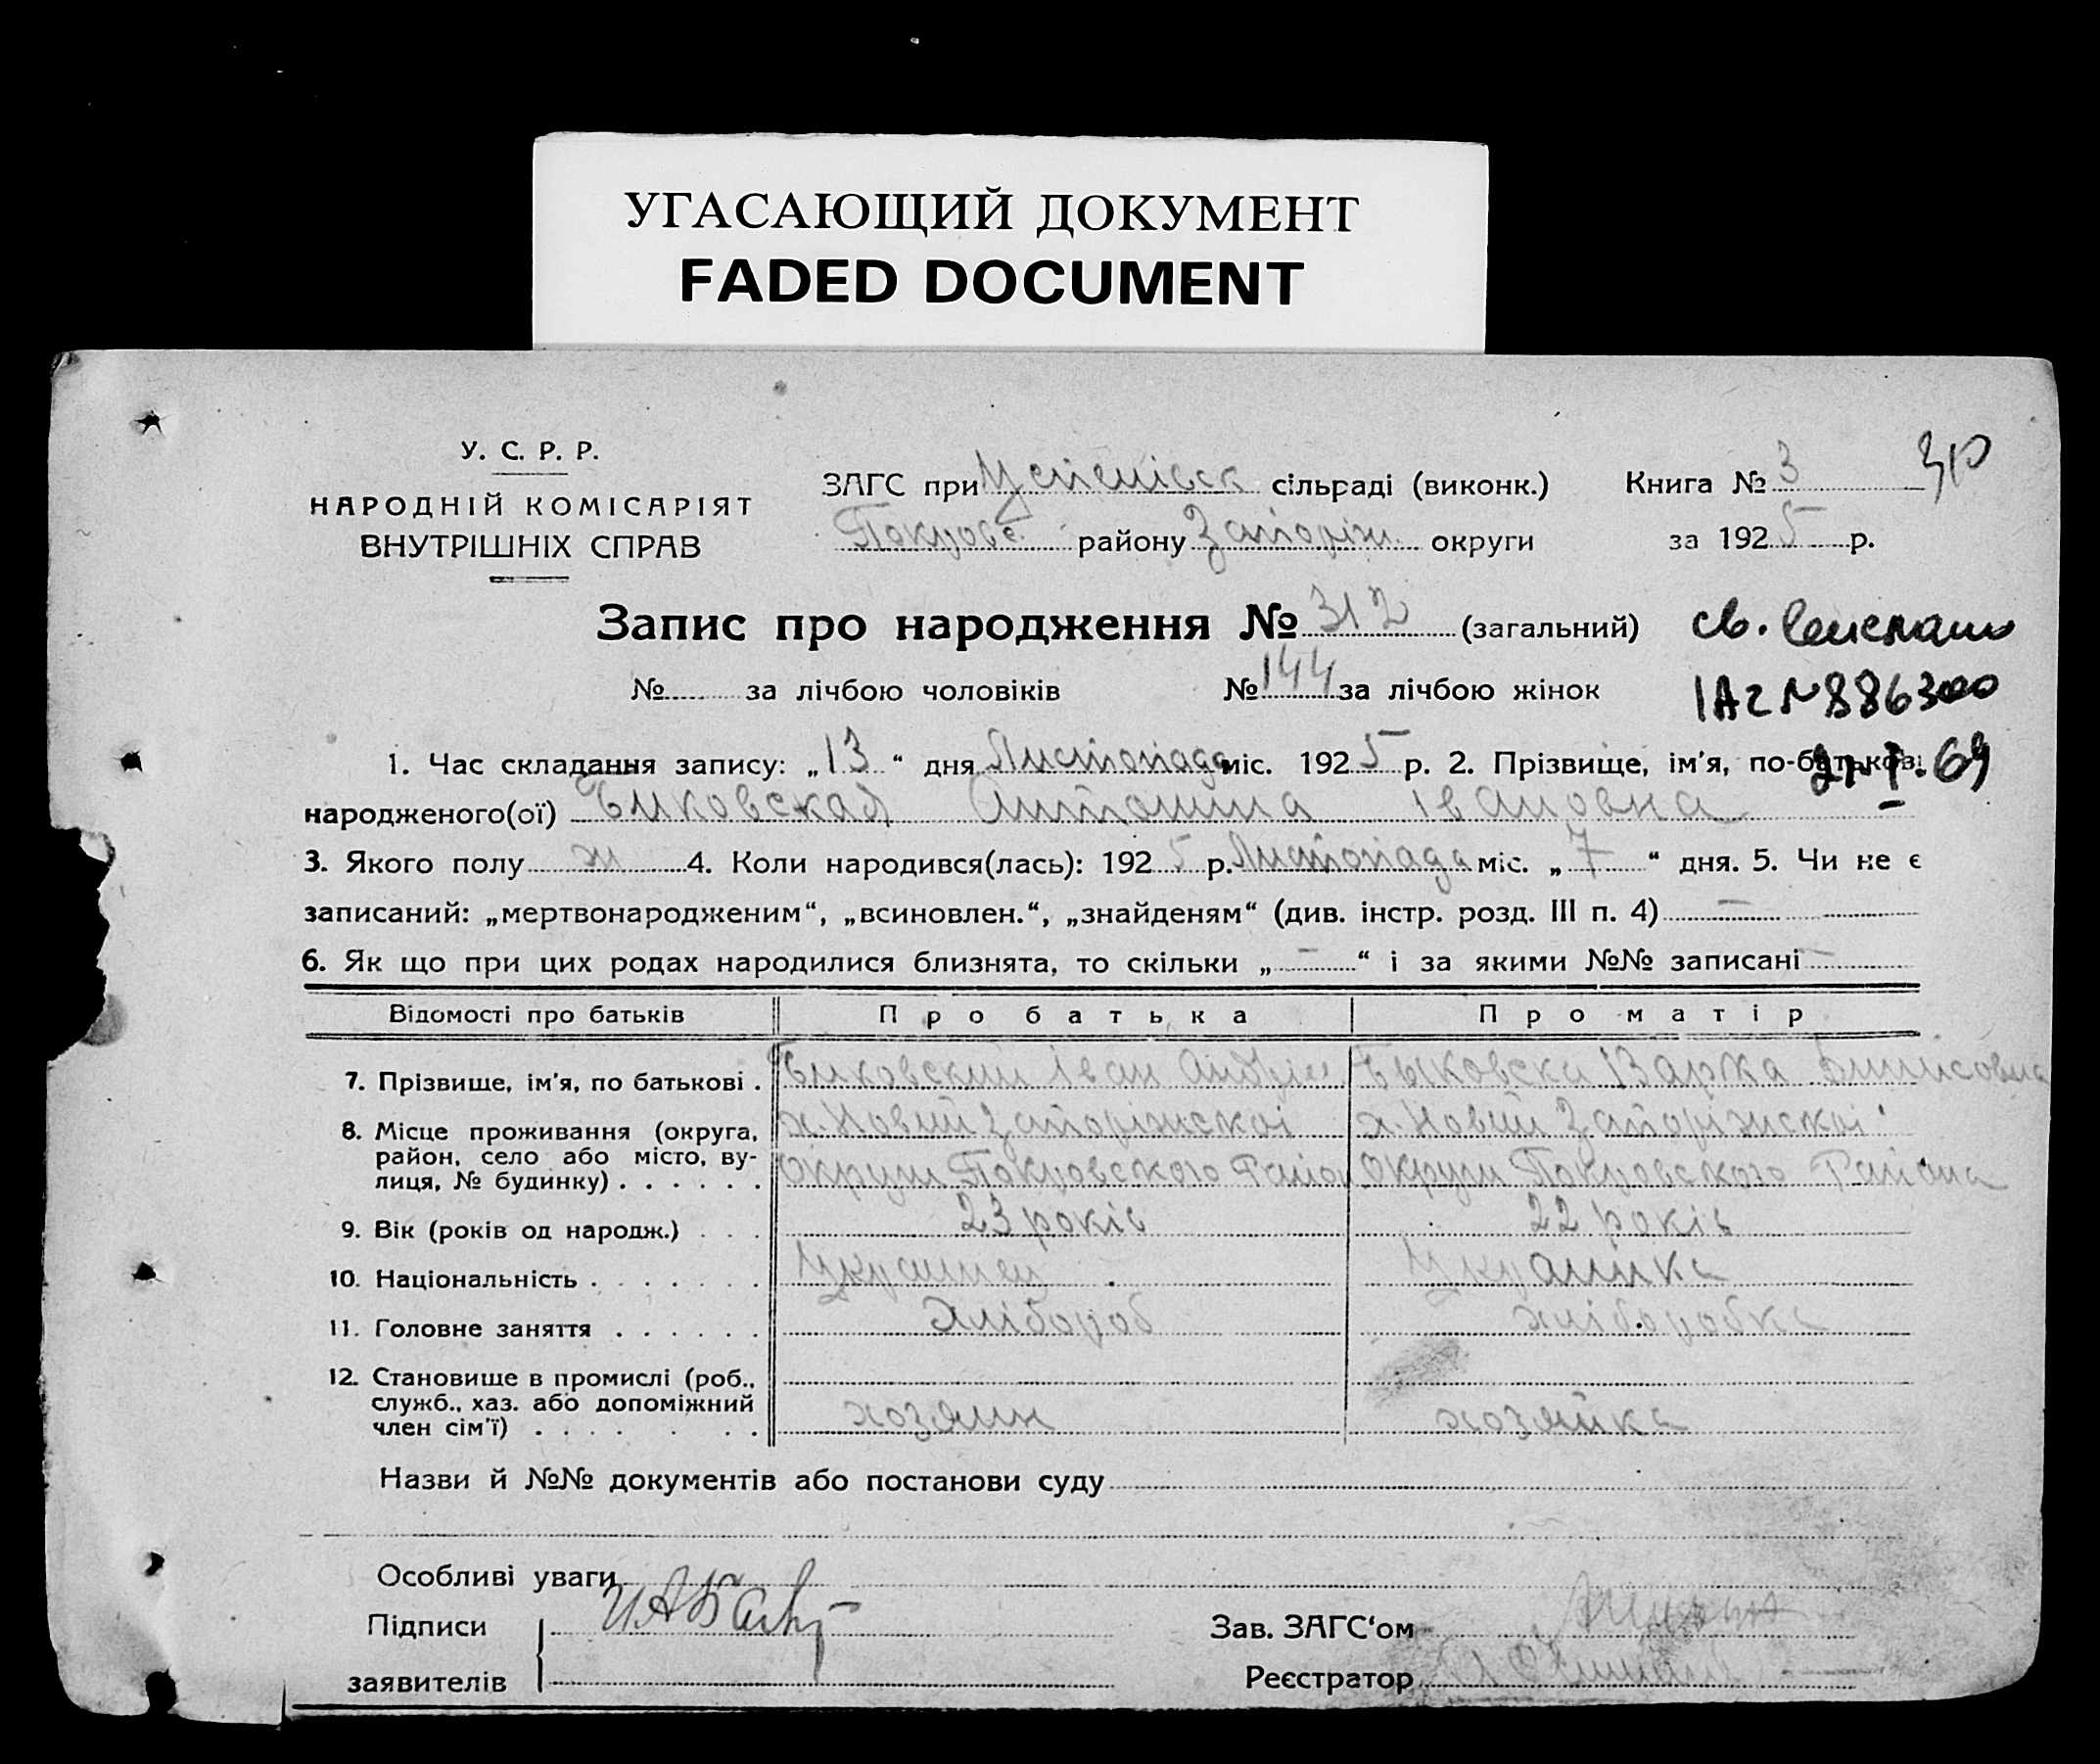 УГАСАЮЩИЙ ДОКУМЕНТ
FADED DOCUMENT
У. С. Р. Р.
НАРОДНІЙ КОМІСАРІЯТ
ВНУТРІШНІХ СПРАВ
ЗАГС при Успенівск сільраді (виконк.) Книга № 3
Покровс. району Запоріж. округи за 1925 р.
Запис про народження № 312 (загальний)
св.
№ за лічбою чоловіків № 144 за лічбою жінок
IАг № 886300
1. Час складання запису: „13“ дня Листопада міс. 1925 р. 2. Прізвище, ім'я, по-батькові
народженого(ої) Биковская Антонина Івановна
3. Якого полу ж 4. Коли народився(лась): 1925 р. Листопада міс. „7“ дня. 5. Чи не є
записаний: „мертвонародженим“, „всиновлен.“, „знайденям“ (див. інстр. розд. III п. 4) —
6. Як що при цих родах народилися близнята, то скільки „—“ і за якими №№ записані —
Відомості про батьків Про батька Про матір
7. Прізвище, ім'я, по батькові . Биковский Іван Андрі Быковска Варка
8. Місце проживання (округа, х. Новий Запоріжскоі х. Новий Запоріжскоі
район, село або місто, ву-
лиця, № будинку) . . . . . . округи Покровского Район округи Покровского Района
9. Вік (років од народж.) . . . 23 років 22 років
10. Національність . . . . . . . Украинец Украинка
11. Головне заняття . . . . . . Хлібороб хліборобка
12. Становище в промислі (роб.,
служб., хаз. або допоміжний
член сім'ї) . . . . . . . хозяин хозяйка
Назви й №№ документів або постанови суду
Особливі уваги
Підписи
Зав. ЗАГС'ом
заявителів
Реєстратор